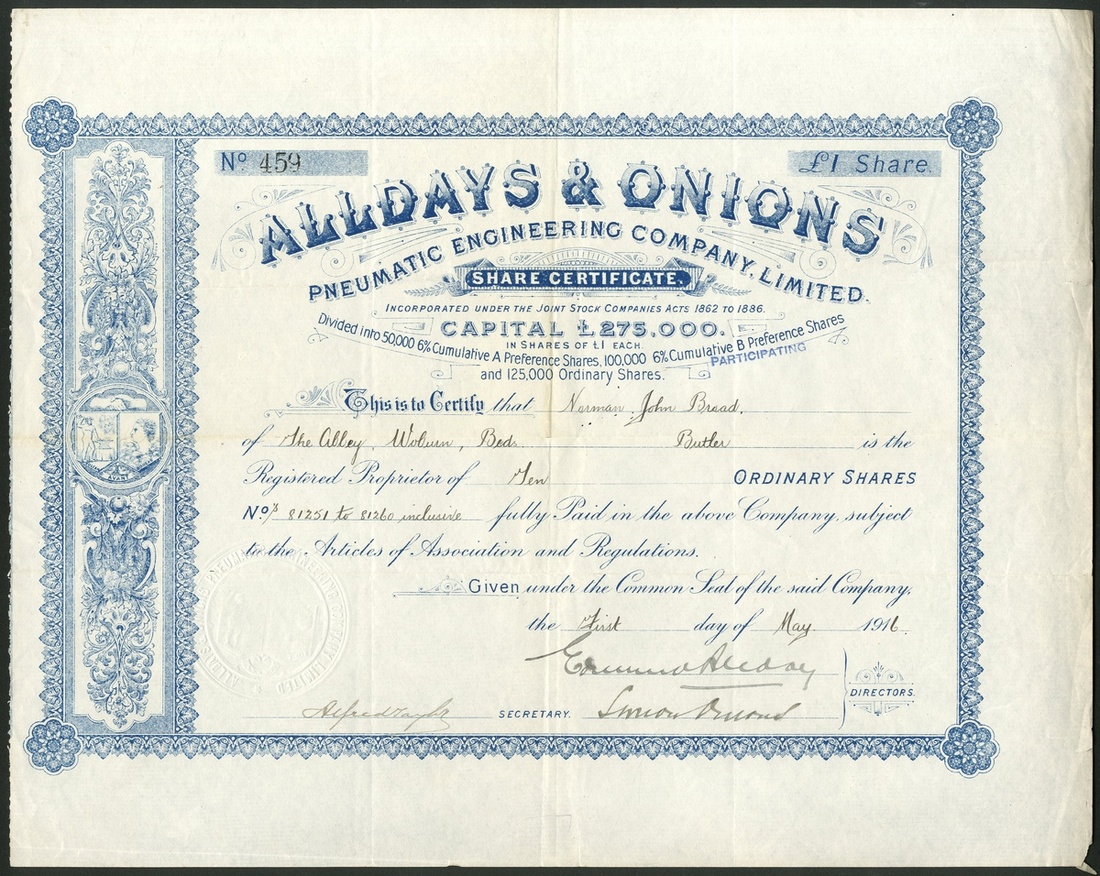 No 459
£1 Share.
ALLDAYS & ONIONS
PNEUMATIC ENGINEERING COMPANY, LIMITED.
SHARE CERTIFICATE.
INCORPORATED UNDER THE JOINT STOCK COMPANIES ACTS 1862 TO 1886.
CAPITAL £275.000.
IN SHARES OF £1 EACH.
Divided into 50,000 6% Cumulative A Preference Shares, 100,000 6% Cumulative B Preference Shares
PARTICIPATING
and 125,000 Ordinary Shares.
This is to Certify that Norman John Broad.
of The Abbey, Woburn, Beds. Butler is the
Registered Proprietor of Ten ORDINARY SHARES
Nos 81251 to 81260 inclusive fully Paid in the above Company, subject
to the Articles of Association and Regulations.
Given under the Common Seal of the said Company,
the First day of May 1916.
DIRECTORS.
SECRETARY.